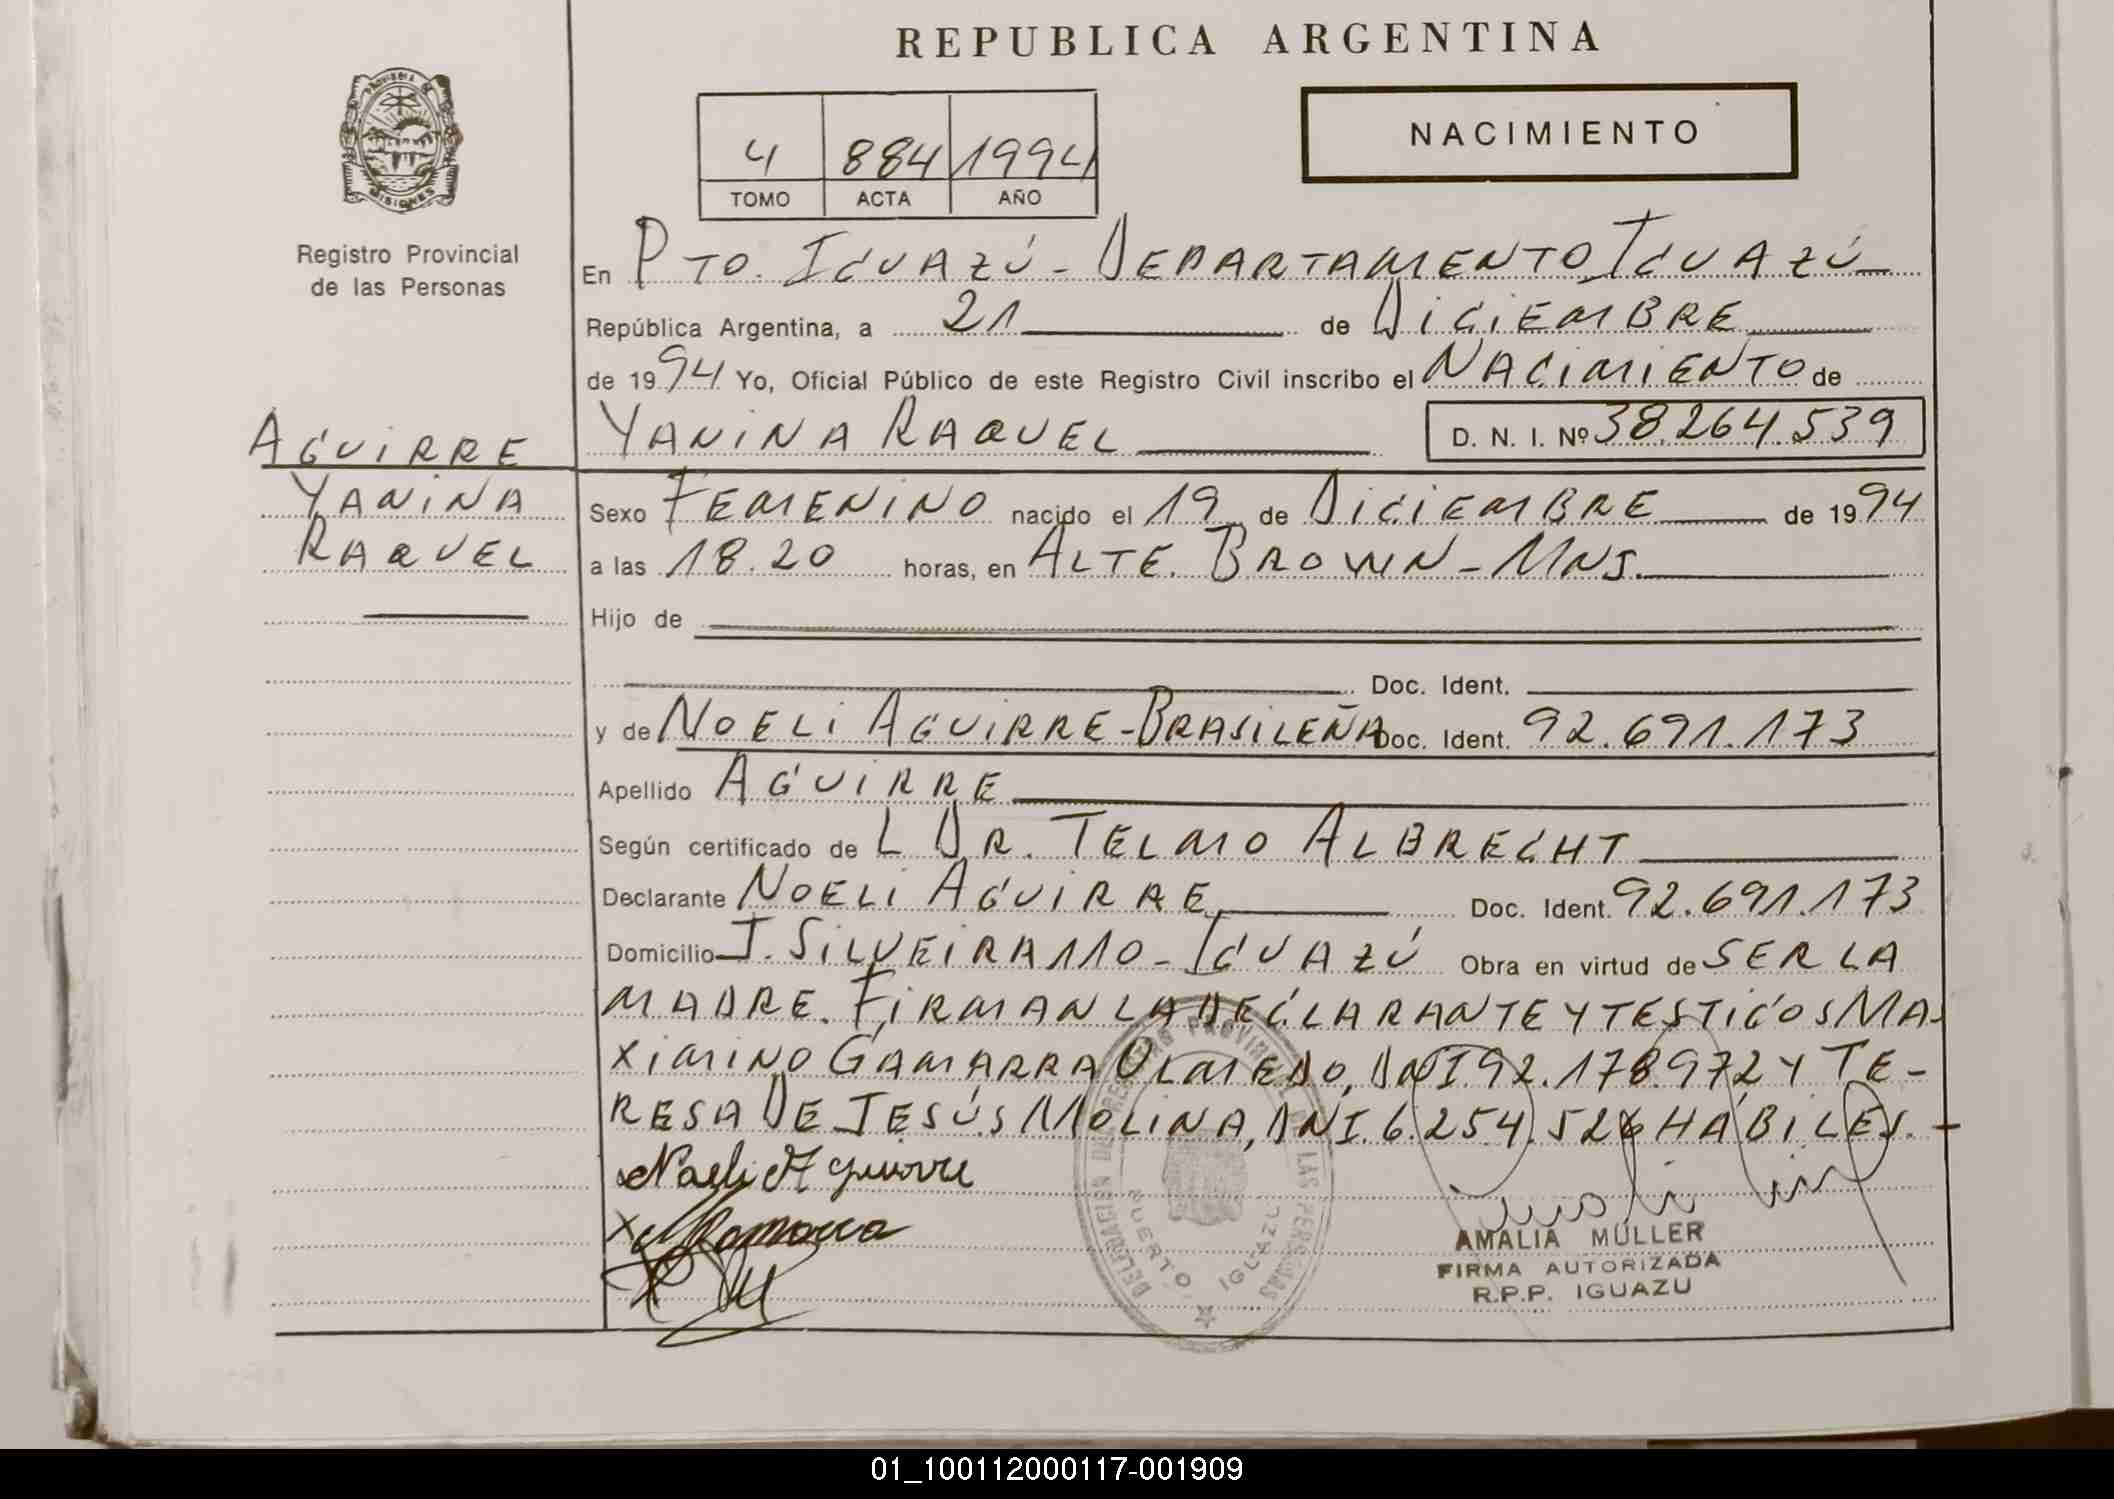 REPUBLICA ARGENTINA
NACIMIENTO
4 884 1994
TOMO ACTA AÑO
PROVINCIA DE MISIONES
Registro Provincial
de las Personas
En PTO. IGUAZÚ - DEPARTAMENTO IGUAZÚ
República Argentina, a 21 de DICIEMBRE
de 1994 Yo, Oficial Público de este Registro Civil inscribo el NACIMIENTO de
YANINA RAQUEL D. N. I. Nº 38.264.539
AGUIRRE
YANINA
RAQUEL
Sexo FEMENINO nacido el 19 de DICIEMBRE de 1994
a las 18.20 horas, en ALTE. BROWN - MNS.
Hijo de
Doc. Ident.
y de NOELI AGUIRRE - BRASILEÑA Doc. Ident. 92.691.173
Apellido AGUIRRE
Según certificado de L DR. TELMO ALBRECHT
Declarante NOELI AGUIRRE Doc. Ident. 92.691.173
Domicilio J. SILVEIRA 110 - IGUAZÚ Obra en virtud de SER LA
MADRE. FIRMAN LA DECLARANTE Y TESTIGOS MA
XIMINO GAMARRA OLMEDO, DNI 92.178.972 Y TE-
RESA DE JESÚS MOLINA, DNI. 6.254.526 HÁBILES. -
Noeli Aguirre
DELEGACIÓN DEL REGISTRO PROVINCIAL DE LAS PERSONAS
PUERTO IGUAZU
AMALIA MULLER
FIRMA AUTORIZADA
R.P.P. IGUAZU
01_100112000117-001909